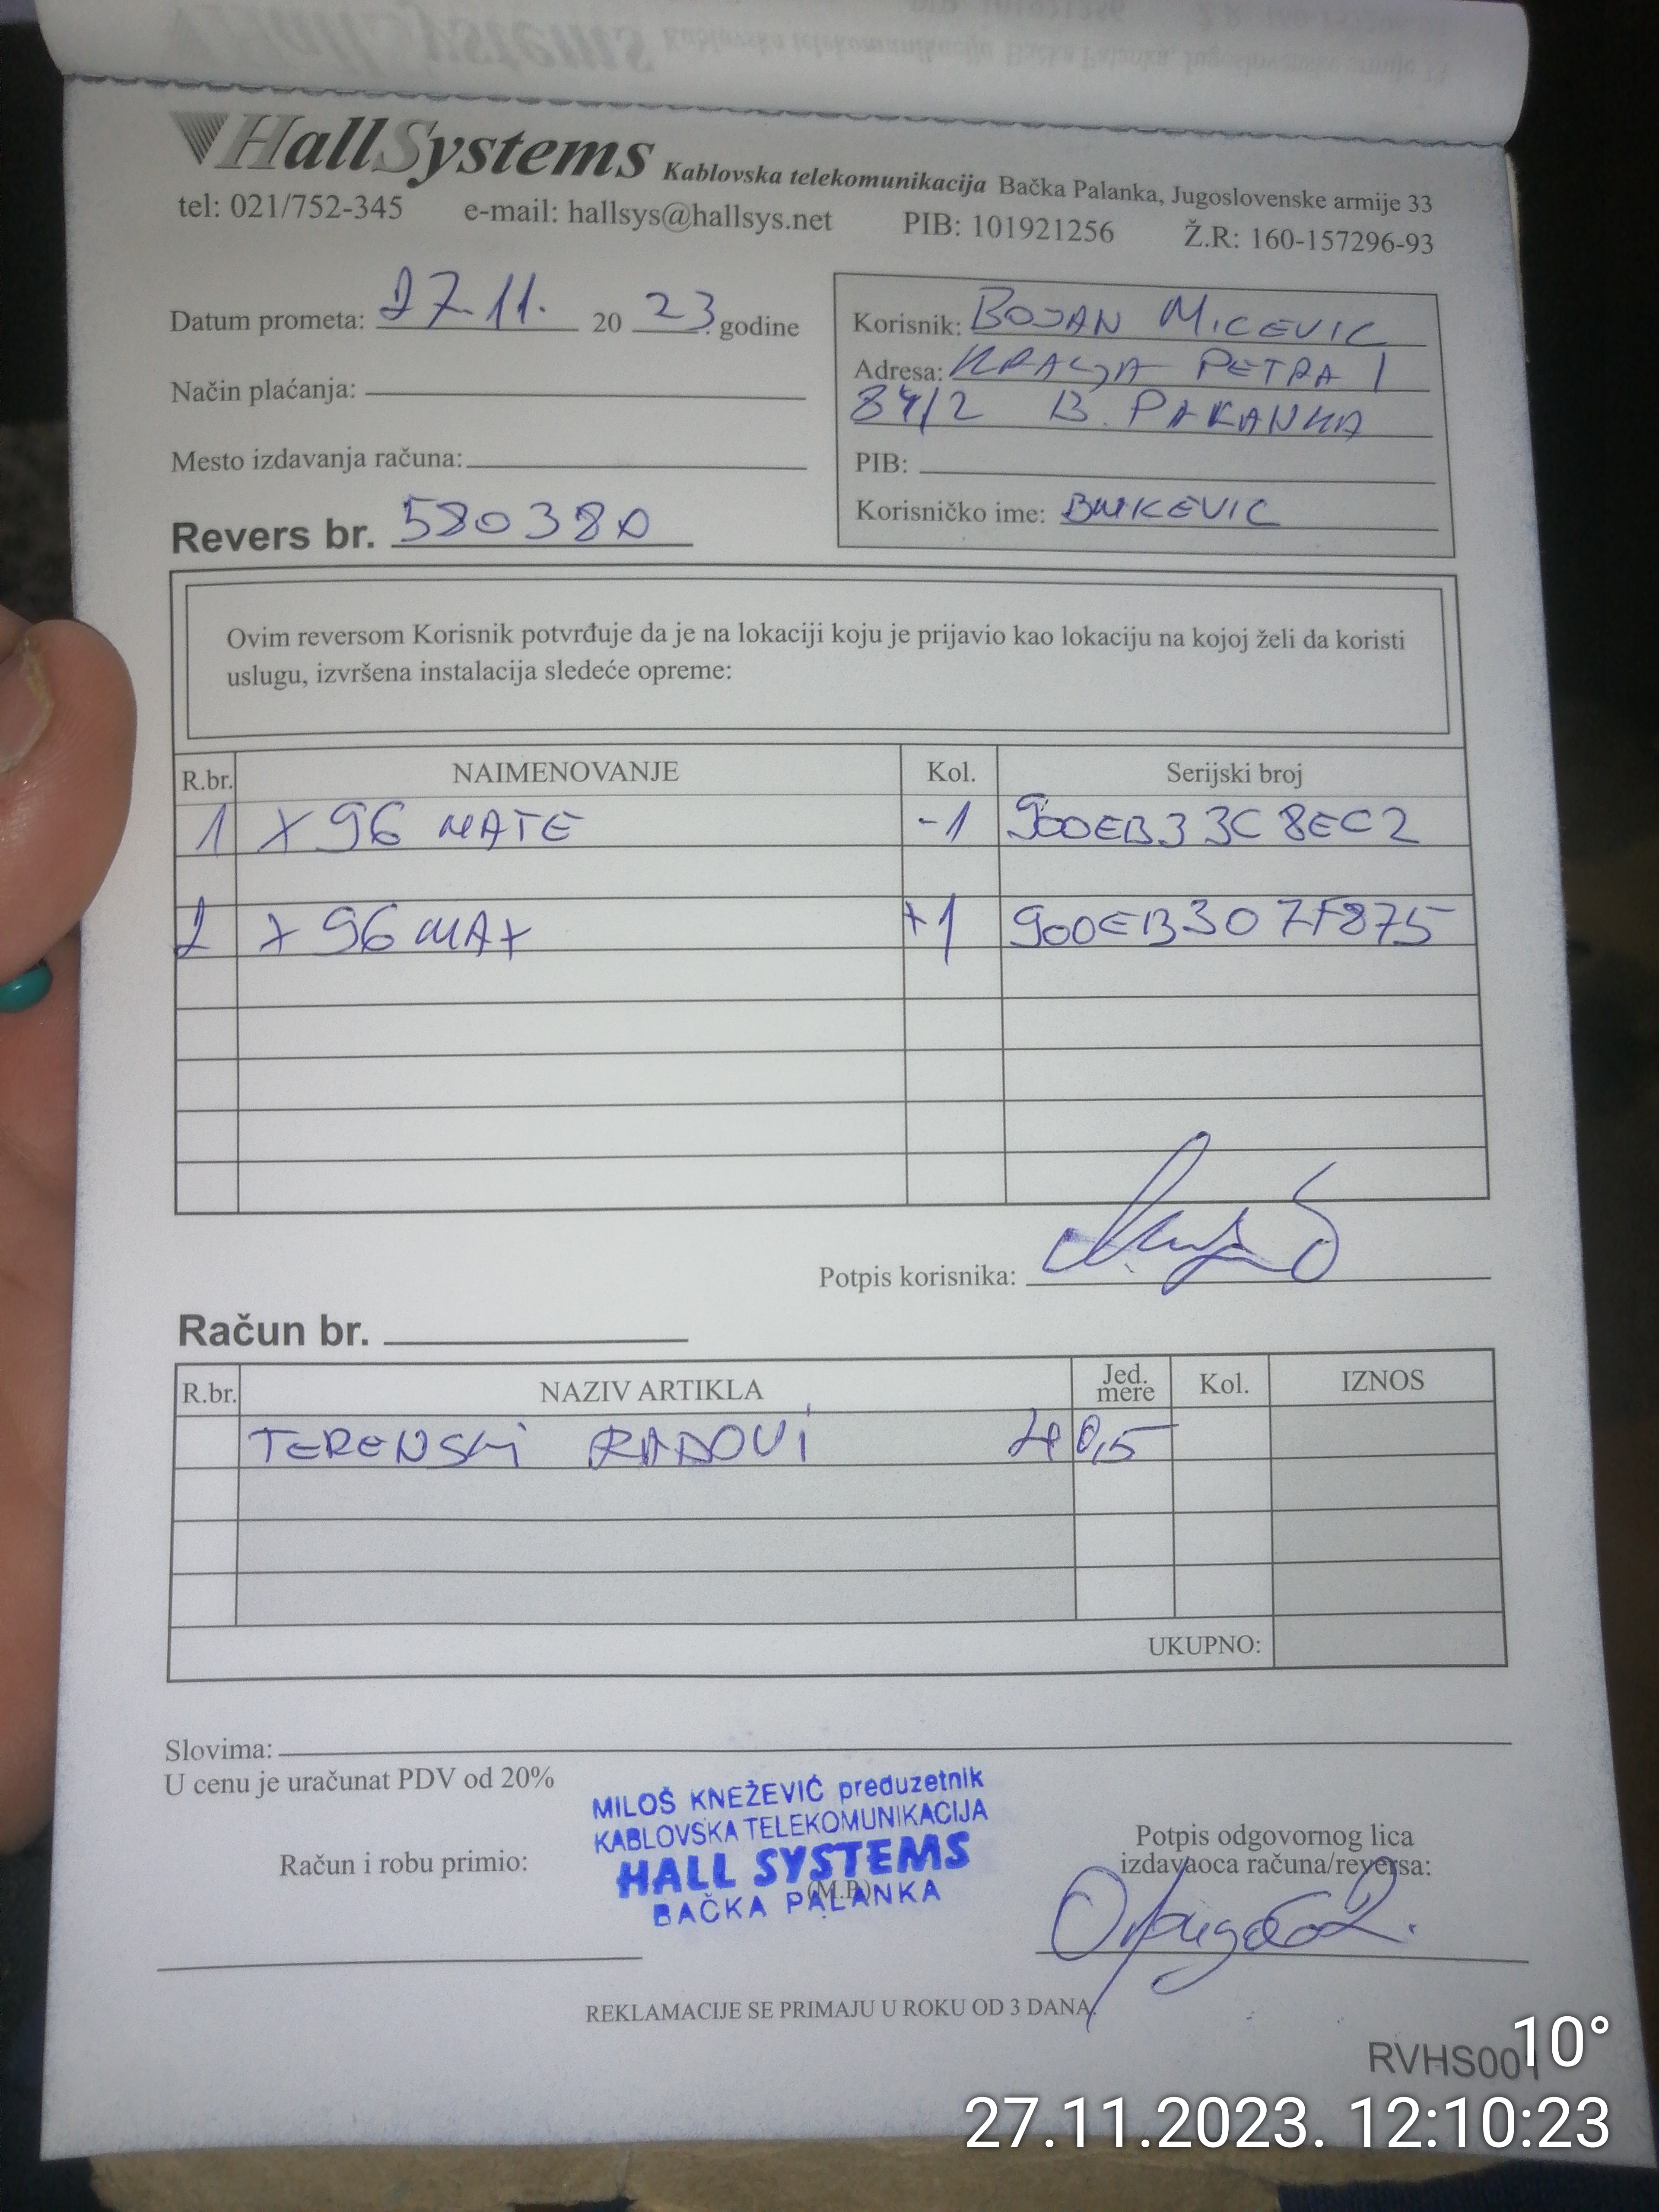 HallSystems Kablovska telekomunikacija Bačka Palanka, Jugoslovenske armije 33
tel: 021/752-345 e-mail: hallsys@hallsys.net PIB: 101921256 Ž.R: 160-157296-93
Datum prometa: 27.11. 20 23 godine
Način plaćanja:
Mesto izdavanja računa:
Revers br. 580380
Korisnik: BOJAN MICEVIC
Adresa: KRALJA PETRA 1
84/2 B. PALANKA
PIB:
Korisničko ime:
Ovim reversom Korisnik potvrđuje da je na lokaciji koju je prijavio kao lokaciju na kojoj želi da koristi
uslugu, izvršena instalacija sledeće opreme:
R.br. NAIMENOVANJE Kol. Serijski broj
1 X96 MATE -1 900EB33C8EC2
2 X96 MAX +1 900EB307F875
Potpis korisnika:
Račun br.
R.br. NAZIV ARTIKLA Jed. mere Kol. IZNOS
TERENSKI RADOVI 0,5
UKUPNO:
Slovima:
U cenu je uračunat PDV od 20%
MILOŠ KNEŽEVIĆ preduzetnik
KABLOVSKA TELEKOMUNIKACIJA
HALL SYSTEMS
BAČKA PALANKA
(M.P.)
Račun i robu primio:
Potpis odgovornog lica
izdavaoca računa/reversa:
REKLAMACIJE SE PRIMAJU U ROKU OD 3 DANA.
RVHS001
10°
27.11.2023. 12:10:23